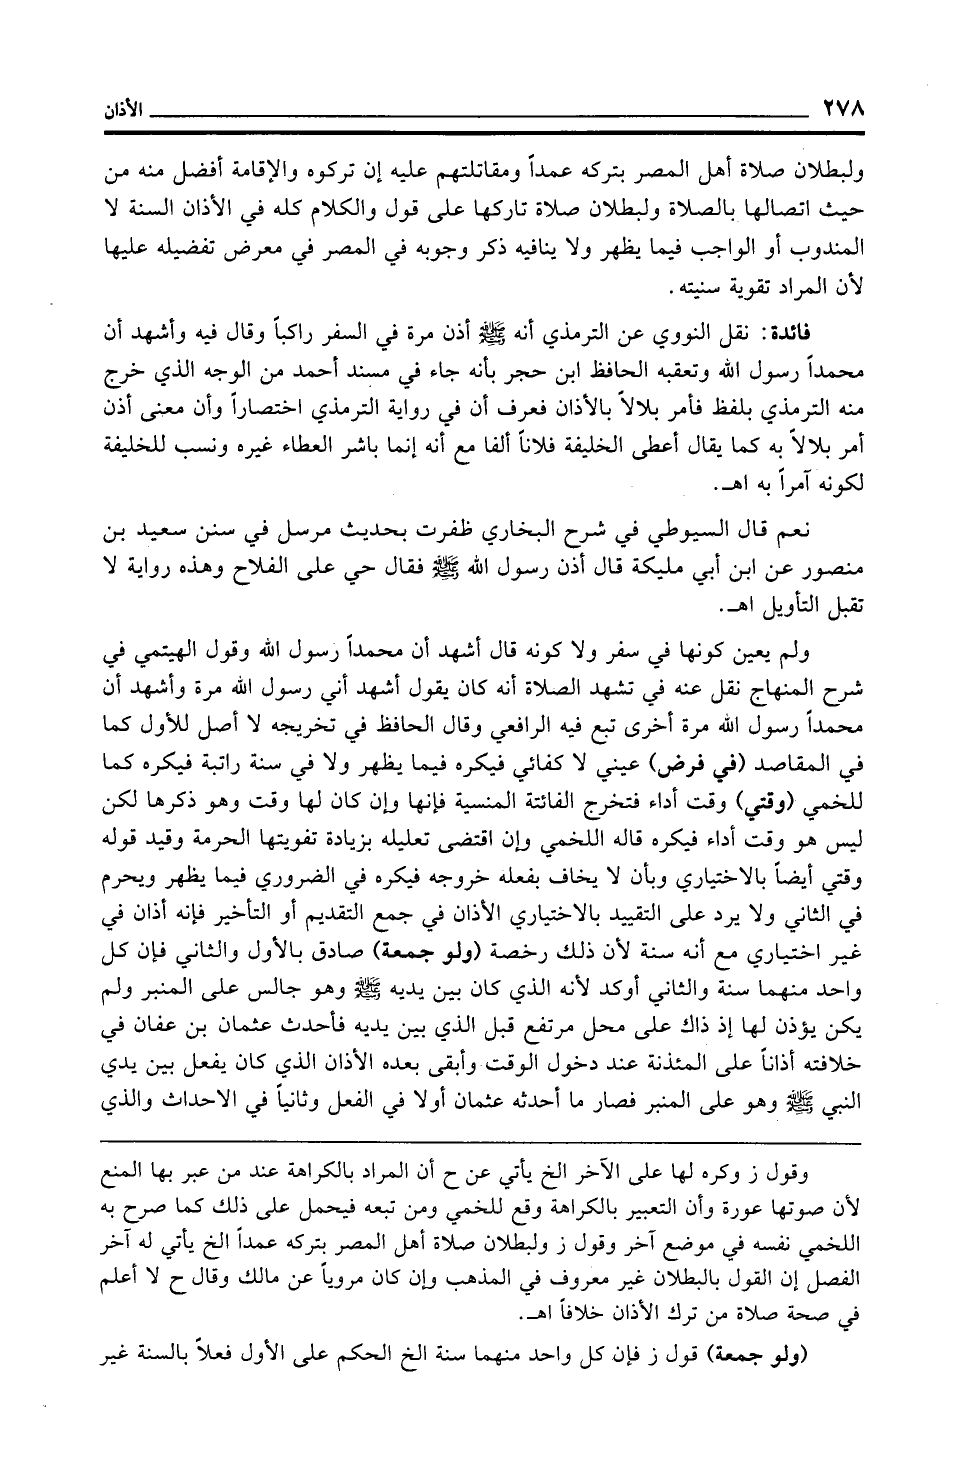 ٢٧٨ الأذان
ولبطلان صلاة أهل المصر بتركه عمداً ومقاتلتهم عليه إن تركوه والإقامة أفضل منه من
حيث اتصالها بالصلاة ولبطلان صلاة تاركها على قول والكلام كله في الأذان السنة لا
المندوب أو الواجب فيما يظهر ولا ينافيه ذكر وجوبه في المصر في معرض تفضيله عليها
لأن المراد تقوية سنيته.
فائدة: نقل النووي عن الترمذي أنه ﷺ أذن مرة في السفر راكباً وقال فيه وأشهد أن
محمداً رسول الله وتعقبه الحافظ ابن حجر بأنه جاء في مسند أحمد من الوجه الذي خرج
منه الترمذي بلفظ فأمر بلالاً بالأذان فعرف أن في رواية الترمذي اختصاراً وأن معنى أذن
أمر بلالاً به كما يقال أعطى الخليفة فلاناً ألفا مع أنه إنما باشر العطاء غيره ونسب للخليفة
لكونه آمراً به اهـ.
نعم قال السيوطي في شرح البخاري ظفرت بحديث مرسل في سنن سعيد بن
منصور عن ابن أبي مليكة قال أذن رسول الله ﷺ فقال حي على الفلاح وهذه رواية لا
تقبل التأويل اهـ.
ولم يعين كونها في سفر ولا كونه قال أشهد أن محمداً رسول الله وقول الهيتمي في
شرح المنهاج نقل عنه في تشهد الصلاة أنه كان يقول أشهد أني رسول الله مرة وأشهد أن
محمداً رسول الله مرة أخرى تبع فيه الرافعي وقال الحافظ في تخريجه لا أصل للأول كما
في المقاصد (في فرض) عيني لا كفائي فيكره فيما يظهر ولا في سنة راتبة فيكره كما
للخمي (وقتي) وقت أداء فتخرج الفائتة المنسية فإنها وإن كان لها وقت وهو ذكرها لكن
ليس هو وقت أداء فيكره قاله اللخمي وإن اقتضى تعليله بزيادة تفويتها الحرمة وقيد قوله
وقتي أيضاً بالاختياري وبأن لا يخاف بفعله خروجه فيكره في الضروري فيما يظهر ويحرم
في الثاني ولا يرد على التقييد بالاختياري الأذان في جمع التقديم أو التأخير فإنه أذان في
غير اختياري مع أنه سنة لأن ذلك رخصة (ولو جمعة) صادق بالأول والثاني فإن كل
واحد منهما سنة والثاني أوكد لأنه الذي كان بين يديه ﷺ وهو جالس على المنبر ولم
يكن يؤذن لها إذ ذاك على محل مرتفع قبل الذي بين يديه فأحدث عثمان بن عفان في
خلافته أذاناً على المئذنة عند دخول الوقت وأبقى بعده الأذان الذي كان يفعل بين يدي
النبي ﷺ وهو على المنبر فصار ما أحدثه عثمان أولا في الفعل وثانياً في الاحداث والذي
وقول ز وكره لها على الآخر الخ يأتي عن ح أن المراد بالكراهة عند من عبر بها المنع
لأن صوتها عورة وأن التعبير بالكراهة وقع للخمي ومن تبعه فيحمل على ذلك كما صرح به
اللخمي نفسه في موضع آخر وقول ز ولبطلان صلاة أهل المصر بتركه عمداً الخ يأتي له آخر
الفصل إن القول بالبطلان غير معروف في المذهب وإن كان مروياً عن مالك وقال ح لا أعلم
في صحة صلاة من ترك الأذان خلافاً اهـ.
(ولو جمعة) قول ز فإن كل واحد منهما سنة الخ الحكم على الأول فعلاً بالسنة غير